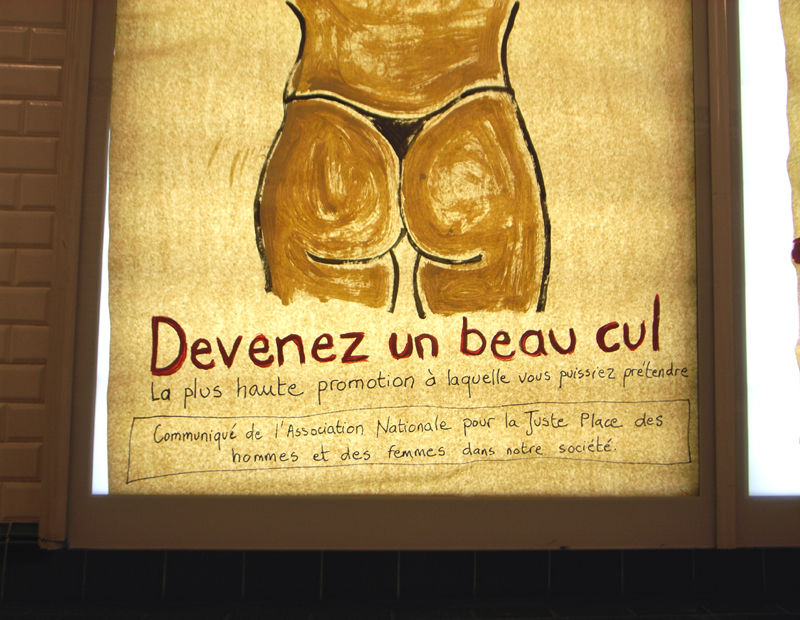 Devenez un beau cul
La plus haute promotion à laquelle vous puissiez prétendre
Communiqué de l'Association Nationale pour la Juste Place des
hommes et des femmes dans notre société.